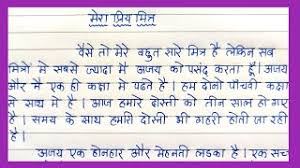 मेरा प्रिय मित्र
वैसे तो मेरे बहुत सारे मित्र है लेकिन सब
मित्रों मे सबसे ज्यादा मैं अजय को पसंद करता हूँ। अजय
और मै एक ही कक्षा मे पढते है। हम दोनो पाँचवी कक्षा
से साथ मे है। आज हमारे दोस्ती को तीन साल हो गए
है। समय के साथ हमारी दोस्ती भी गहरी होती जा रही
है।
अजय एक होनहार और मेहनती लडका है। एक सच्च